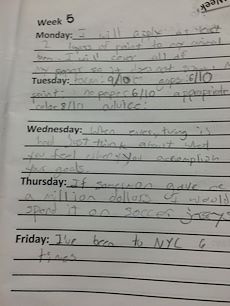 Week 5
Monday: I will apply at least
2 layers of paint to my animal
box I will cover all of
my paper so it does not
Tuesday: 9/10 6/10
paint: no paper 6/10 appropriate
color 8/10 advice:
Wednesday: When everything is
bad just think about what
you feel when you accomplish
your goals.
Thursday: If someone gave me
a million dollars I would
spend it on soccer jerseys
Friday: I've been to NYC 6
times